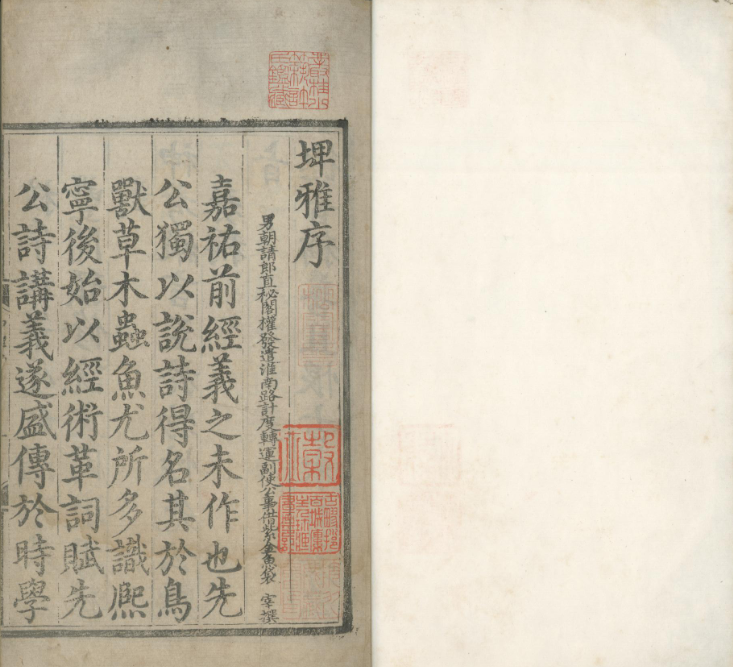 埤雅序
男朝請郎直秘閣權發遣淮南路計度轉運副使公事借紫金魚袋 宰撰
嘉祐前經義之未作也先
公獨以說詩得名其於鳥
獸草木蟲魚尤所多識熙
寧後始以經術革詞賦先
公詩講義遂盛傳於時學